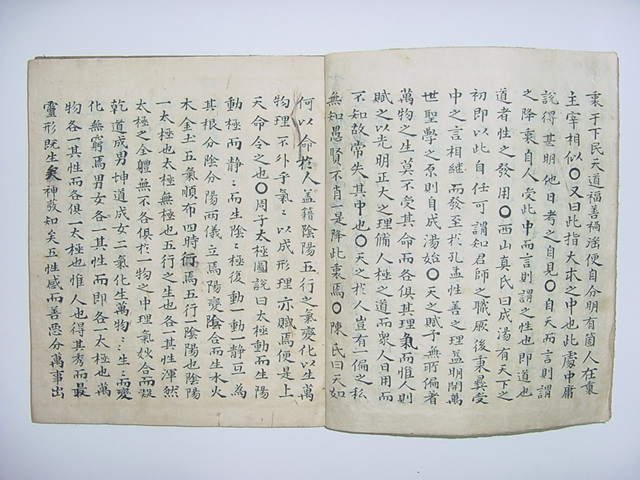 衷于下民天道福善禍滛便自分明有箇人在裏
主宰相似○又曰此指大本之中也此處中庸
說得甚明他日考之自見○自天而言則謂
之降衷自人受此中而言則謂之性也即道也
道者性之發用○西山真氏曰成湯有天下之
初即以此自任可謂知君師之職厥後秉彛受
中之言相継而發至於孔孟性善之理益明開萬
世聖學之原則自成湯始○天之賦予無所偏者
萬物之生莫不受其命而各俱其理氣而惟人則
賦之以光明正大之理俻人極之道而衆人日用而
不知故常失其中也○天之於人豈有一偏之私
無知愚賢不肖一是降此衷焉○陳氏曰天如
何以命於人盖籍陰陽五行之氣變化以生萬
物理不外乎氣氣以成形理亦賦焉便是上
天命令之也○周子太極圖說曰太極動而生陽
動極而静静而生陰静極復動一動一静互爲
其根分陰分陽兩儀立焉陽變陰合而生水火
木金土五氣順布四時行焉五行一陰陽也陰陽
一太極也太極本無極也五行之生也各一其性渾然
太極之全軆無不各俱於一物之中理氣妙合而凝
乾道成男坤道成女二氣化生萬物萬物生生而變
化無窮焉男女各一其性而即各一太極也萬
物各一其性而各俱一太極也惟人也得其秀而最
靈形既生矣神發知矣五性感而善悪分萬事出